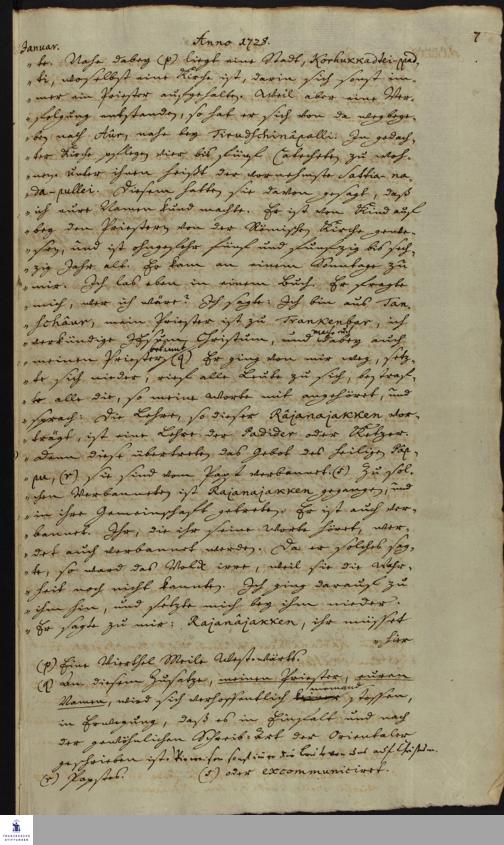 Januar. Anno 1728. 7
te. Nahe dabey (p) liegt eine Stadt, Korkukkadtei-ppad,
ti, woselbst eine Kirche ist, darin sich sonst im-
mer ein Priester aufgehalten. Weil aber eine Ver-
folgung entstanden, so hat er sich von da wegbege-
ben nach Aur, nahe bey Tirudschináppalli. In gedach-
ter Kirche pflegen vier bis fünf Catecheten zu woh-
nen: unter ihnen heißt der vornehmste Sattia-na,
da-pullei. Diesem hatten sie davon gesagt, daß
ich euren Namen kund machte. Er ist von Kind auf
bey den Priestern von der Römischen Kirche gewe-
sen, und ist ohngefehr fünf und funfzig bis sech-
zig Jahr alt. Er kam an einem Sonntage zu
mir. Ich las eben in einem Buch. Er fragte
mich, wer ich wäre? Ich sagte: Ich bin aus Tan-
schäur, mein Priester ist zu Trankenbar, ich
verkündige JEsum Christum, und dabey auch
meinen Priester (q) Er ging von mir weg, setz-
te sich nieder, rief alle Leute zu sich, bestraf-
te alle die, so meine Worte mit angehöret, und
sprach: Die Lehre, so dieser Rájanájakken vor-
trägt, ist eine Lehre der Padider oder Ketzer.
Denn diese übertreten das Gebot des heiligen Páp-
pu, (r) sie sind vom Papst verbannet. (s) Zu sol-
chen Verbanneten ist Rájanájakken gegangen, und
in ihre Gemeinschaft getreten. Er ist auch ver-
bannet. Ihr, die ihr seine Worte höret, wer-
det auch verbannet werden. Da er solches sag-
te, so ward das Volk irre, weil sie die Wahr-
heit noch nicht kannten. Ich ging darauf zu
ihm hin, und setzte mich bey ihm nieder.
Er sagte zu mir: Rájanájakken, ihr müsset
hier
(p) Eine Viertel Meile West-wärts.
(q) An diesem Zusatze, meinen Priester, euren
Namen, wird sich verhoffentlich niemand stossen,
in Erwegung, daß es in Einfalt und nach
der gewöhnlichen Schreib-Art der Orientaler
geschrieben ist.
(r) Papstes. (s) oder excommuniciret.